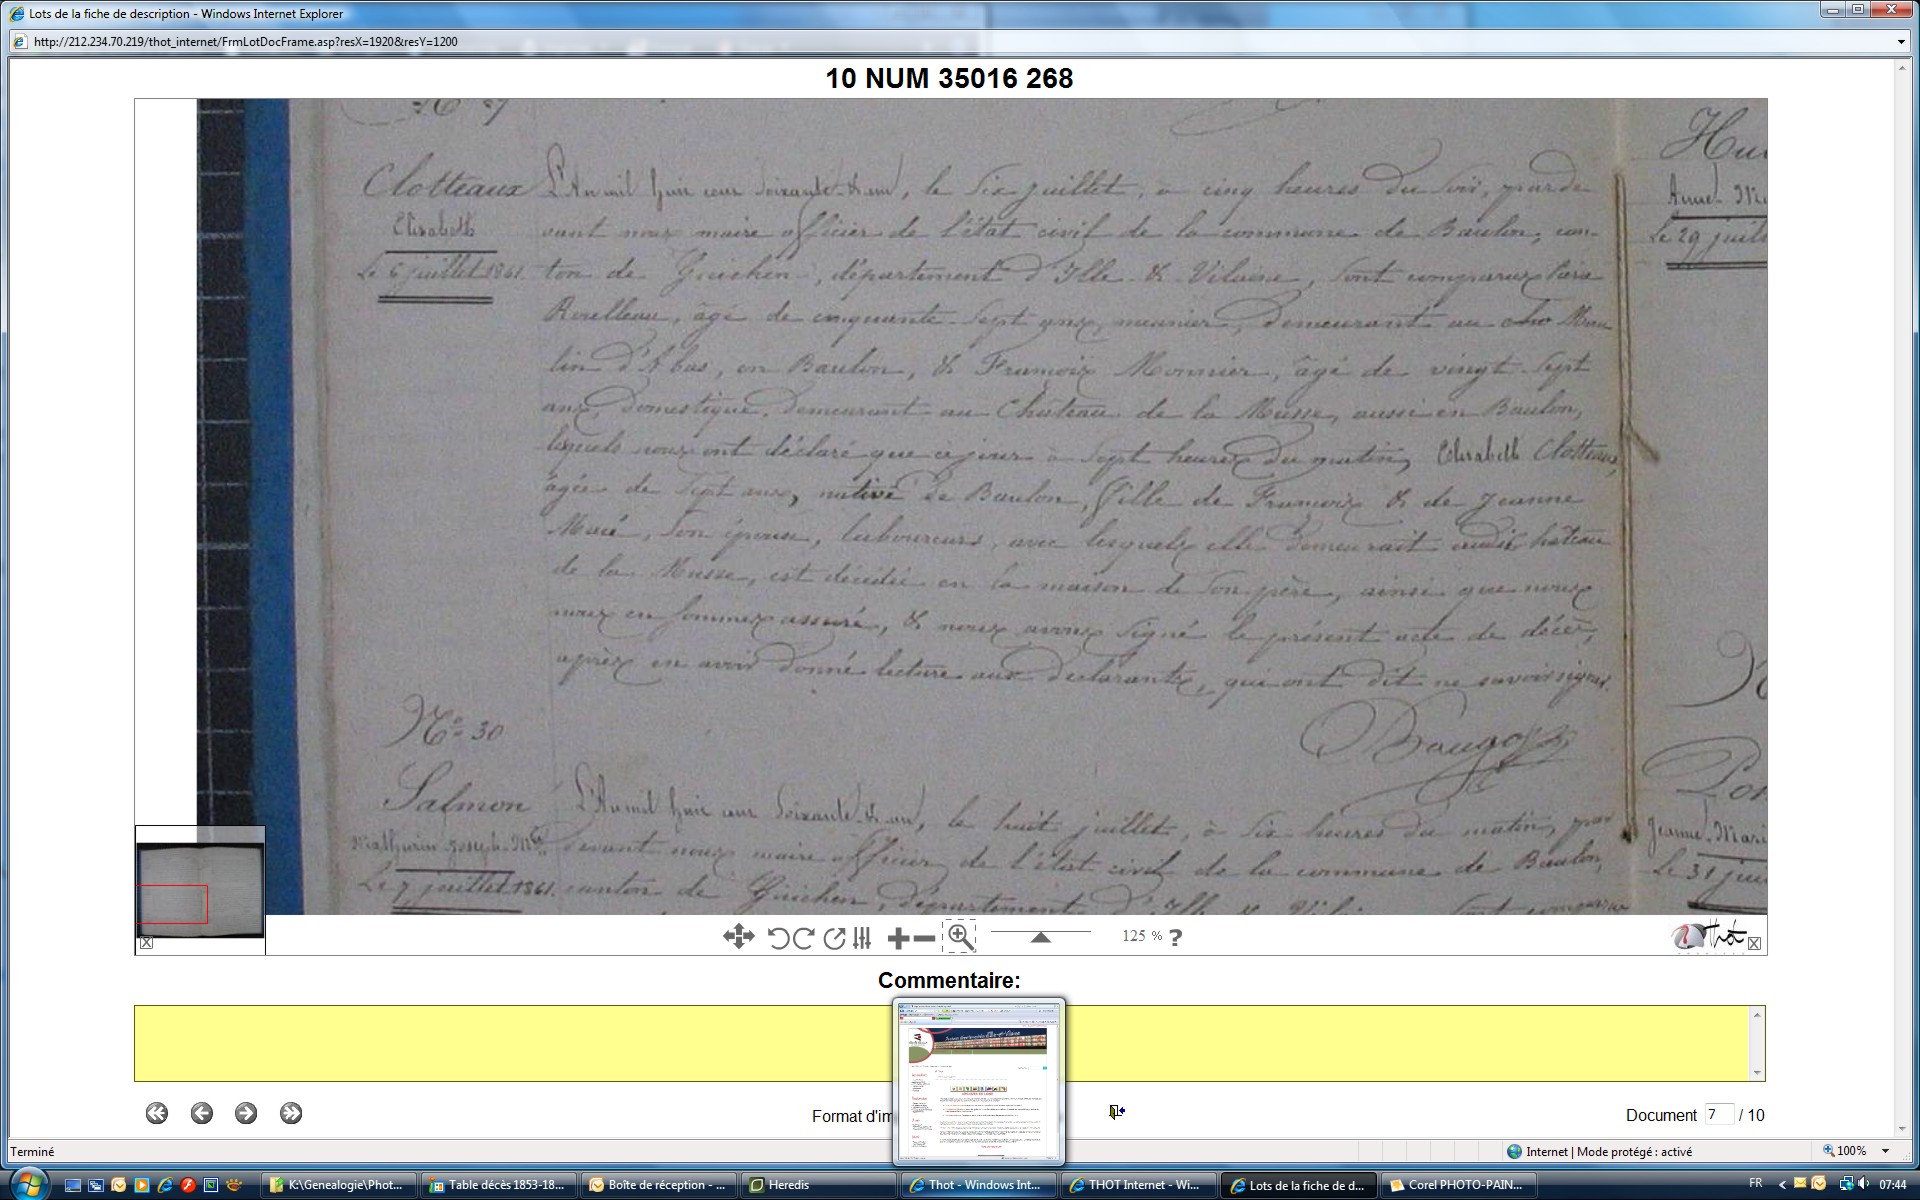 Lots de la fiche de description - Windows Internet Explorer
http://212.234.70.219/thot_internet/FrmLotDocFrame.asp?resX=1920&resY=1200
10 NUM 35016 268
Clotteaux
Elisabeth
Le 6 juillet 1861.
L'An mil huit cent soixante & un, le six juillet, à cinq heures du soir, parde
vant nous maire officier de l'état civil de la commune de Baulon, can-
ton de Guichen, département d'Ille & Vilaine, sont comparus
Roulleau, âgé de cinquante-sept ans, meunier, demeurant au Mou
lin d'Abas, en Baulon, & François Monnier, âgé de vingt-sept
ans, domestique, demeurant au Château de la Musse, aussi en Baulon,
lesquels nous ont déclaré que ce jour à sept heures du matin, Elisabeth Clotteaux,
âgée de sept ans, native de Baulon, fille de François & de Jeanne
Macé, son épouse, laboureurs, avec lesquels elle demeurait château
de la Musse, est décédée en la maison de son père, ainsi que nous
nous en sommes assuré, & nous avons signé le présent acte de décès,
après en avoir donné lecture aux déclarants, qui ont dit ne savoir signer.
Nº 30
Salmon
Mathurin Joseph Mie
Le 7 juillet 1861.
L'An mil huit cent soixante & un, le huit juillet, à six heures du matin, par
devant nous maire officier de l'état civil de la commune de Baulon,
canton de Guichen, département d'Ille & Vilaine, sont comparus
Hu
Anne-M
Le 29 juill
Jeanne-Mari
Le 31 jui
125 % ?
Thot
Commentaire:
Format d'im
Document 7 / 10
Terminé
Internet | Mode protégé : activé
100%
K:\Genealogie\Phot...
Table décès 1853-18...
Boîte de réception - ...
Heredis
Thot - Windows Int...
THOT Internet - Wi...
Lots de la fiche de d...
Corel PHOTO-PAIN...
FR
07:44